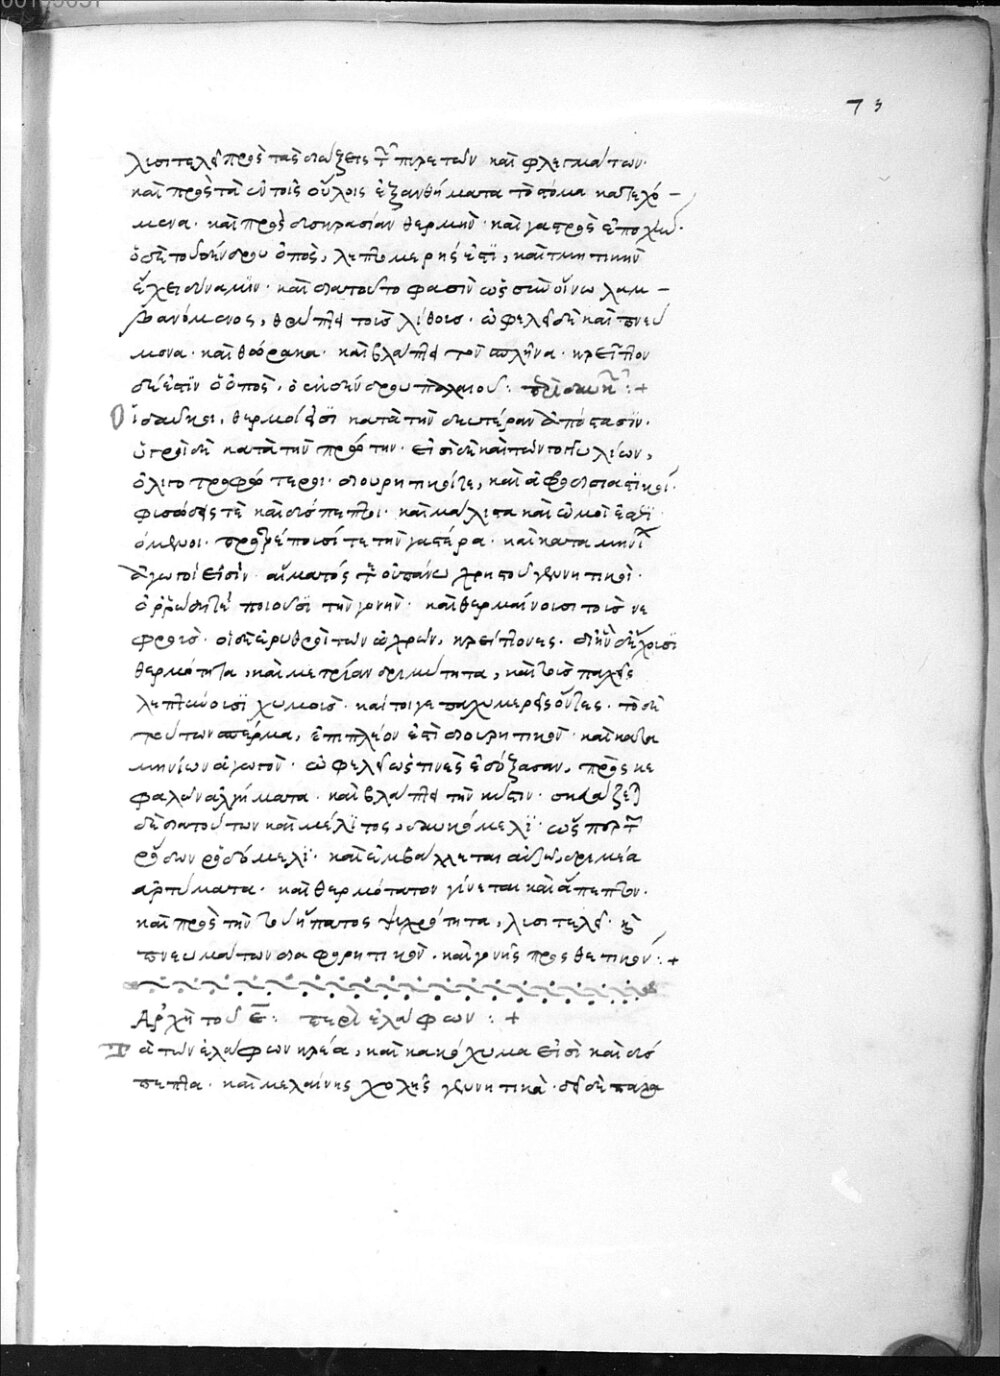 73
λυσιτελεῖ πρὸς τὰς διαΐξεις τῶν πυρετῶν καὶ φλεγμάτων·
καὶ πρὸς τὰ ἐν τοῖς οὔλοις ἐξανθήματα τὸ στόμα κατεχό-
μενα· καὶ πρὸς δυσκρασίαν θερμὴν· καὶ γαστρὸς ἐποχὴν·
ὁ δὲ τοῦ δένδρου ὀπὸς, λεπτομερής ἐστι, καὶ τμητικὴν
ἔχει δύναμιν· καὶ διατοῦτο φασὶν ὡς σὺν οἴνω λαμ-
βανόμενος, θρύπτει τοὺς λίθους· ὠφελεῖ δὲ καὶ πνεύ
μονα· καὶ θώρακα· καὶ βλάπτει τὸν σπλῆνα· κρεῖττον
δέ ἐστιν ὁ ὀπὸς, ὁ ἐκ δένδρου παλαιοῦ: +
Οἱ δαυκοι, θερμοί εἰσι κατὰ τὴν δευτέραν ἀπόστασιν·
ὑγροὶ δὲ κατὰ τὴν πρώτην· εἰσὶ δὲ καὶ τῶν γογγυλίων,
ὀλιγοτροφώτεροι· διουρητικοί τε, καὶ ἀφροδισιαστικοί·
φυσώδεις τὲ καὶ δύσπεπτοι· καὶ μάλιστα καὶ ὠμοὶ ἐσθι
όμενοι· ποιοῦσί τε τὴν γαστέρα· καὶ καταμηνίων
ἀγωγοί εἰσὶν· αἵματός τε οὐ πάνυ χρηστοῦ γεννητικοὶ·
ὀρρώδη δὲ ποιοῦσι τὴν γονὴν· καὶ θερμαίνουσι τοὺς νε
φροὺς· οἱ δὲ ἐρυθροὶ τῶν ὠχρῶν, κρείττονες·
θερμότητα, καὶ μετρίαν δριμύτητα, καὶ τοὺς παχεῖς
λεπτύνουσι χυμοὺς· καίτοιγε παχυμερεῖς ὄντες· τὸ δὲ
τούτων σπέρμα, ἐπιπλέον ἐστὶ διουρητικὸν· καὶ κατα
μηνίων ἀγωγὸν· ὠφελεῖ ὡς τινὲς ἐδόξασαν, πρὸς κε
φαλῶν ἀλγήματα· καὶ βλάπτει τὴν κύστιν· σκευάζεται
δὲ διὰ τούτων καὶ μέλιτος, δαυκόμελι· ὡς περ τῶν
ῥόδων ῥοδόμελι· καὶ ἐμβάλλεται δριμέα
ἀρτύματα· καὶ θερμότατον γίνεται καὶ ἄπεπτον·
καὶ πρὸς τὴν τοῦ ἥπατος ψυχρότητα, λυσιτελεῖ· καὶ
πνευμάτων διαφορητικὸν· καὶ γονῆς προσθετικόν: +
Ἀρχὴ τοῦ ε̅: περὶ ἐλάφων: +
Τὰ τῶν ἐλάφων κρέα, καὶ κακόχυμα εἰσὶ καὶ δύσ
πεπτα· καὶ μελαίνης χολῆς γεννητικὰ· δεῖ δὲ παρα